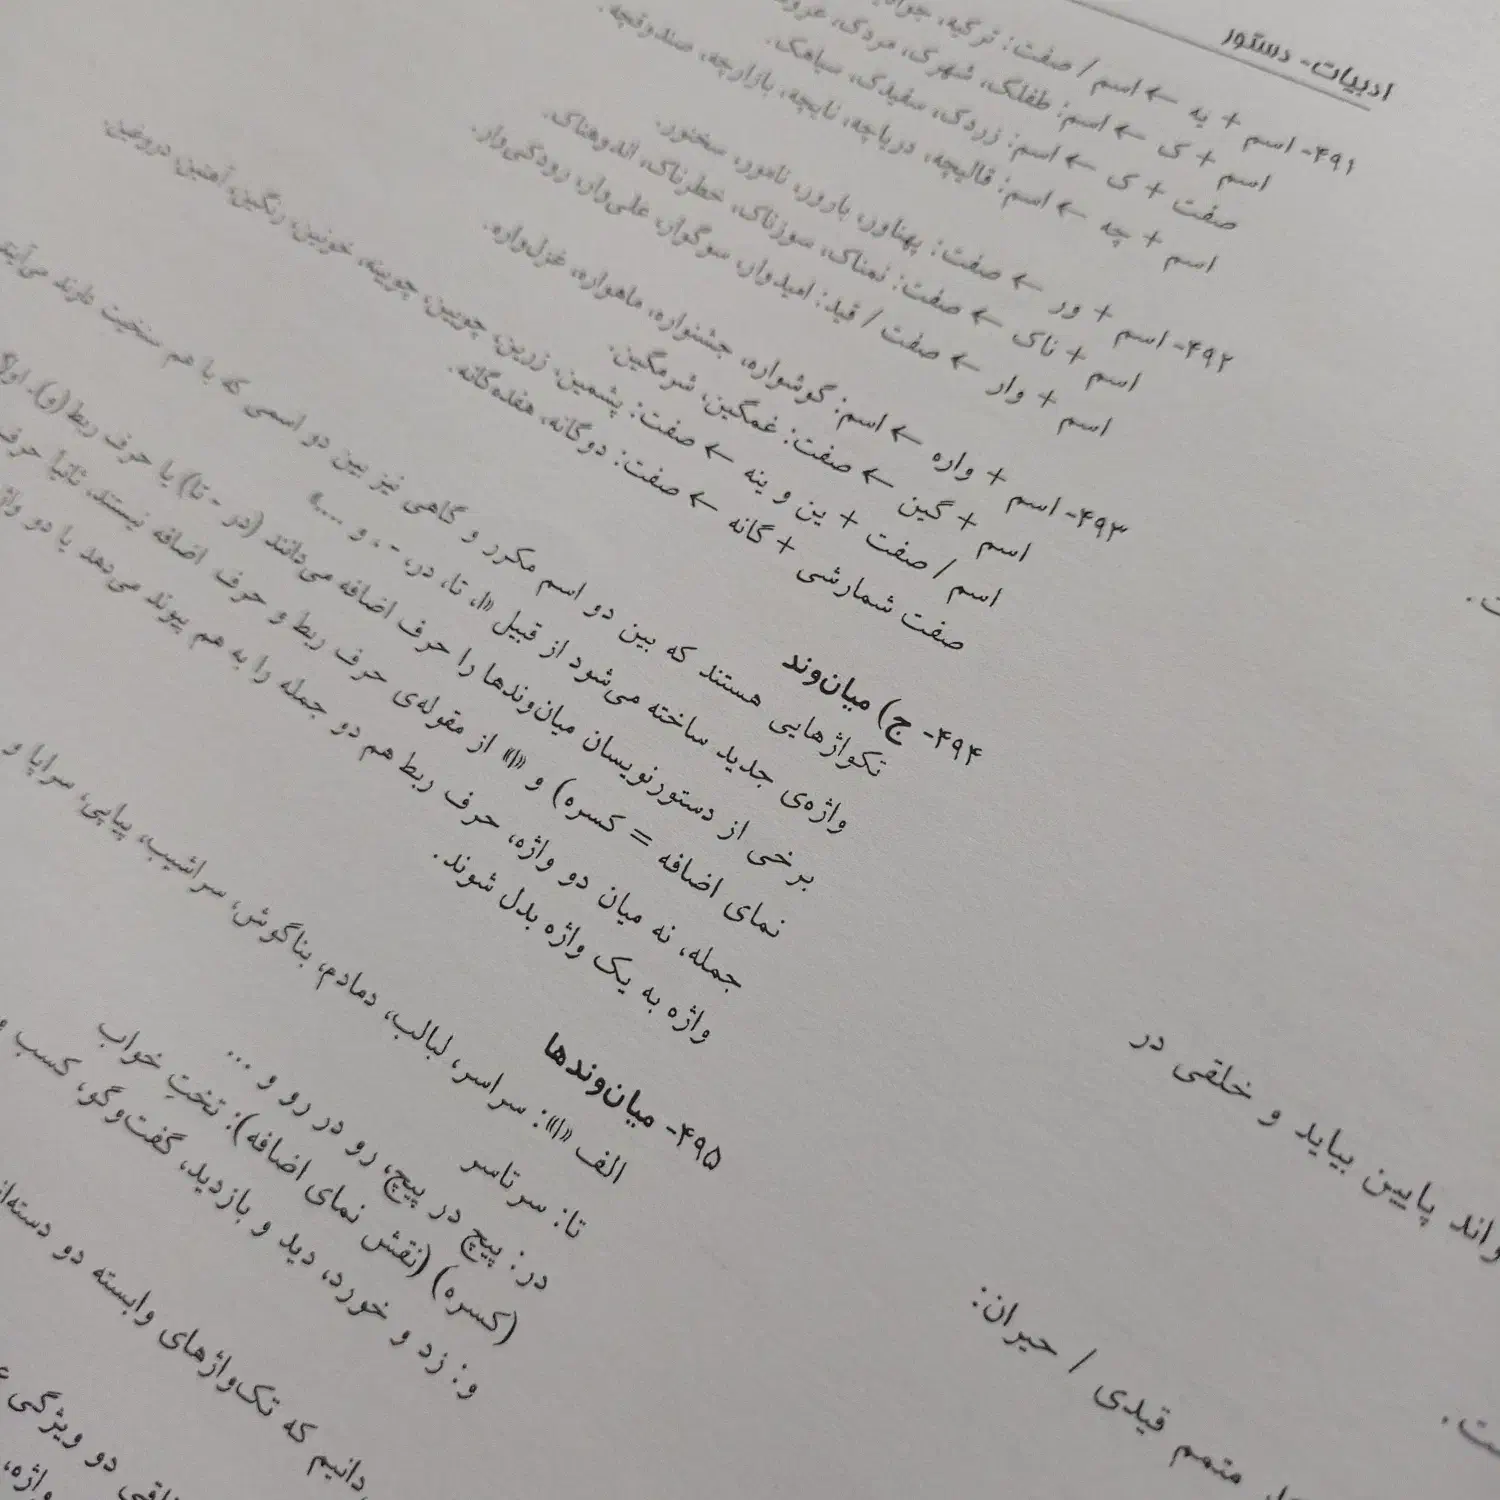 ادبیات- دستور
۴۹۱- اسم + یه ← اسم / صفت: ترکیه،
اسم + ک ← اسم: طفلک، شهرک، مردک،
صفت + ک ← اسم: زردک، سفیدک، سیاهک.
اسم + چه ← اسم: قالیچه، دریاچه، نایچه، بازارچه، صندوقچه.
۴۹۲- اسم + ور ← صفت: پهناور، بارور، نامور، سخنور.
اسم + ناک ← صفت: نمناک، سوزناک، خطرناک، اندوهناک.
اسم + وار ← صفت / قید: امیدوار، سوگوار، علی‌وار، رودکی‌وار.
۴۹۳- اسم + واره ← اسم: گوشواره، جشنواره، ماهواره، غزل‌واره.
اسم + گین ← صفت: غمگین، شرمگین.
اسم / صفت + ین و ینه ← صفت: پشمین، زرین، چوبین، چوبینه، خونین، رنگین، آهنین، دروغین.
صفت شمارشی + گانه ← صفت: دوگانه، هفده‌گانه.
۴۹۴- ج) میان‌وند
تکواژهایی هستند که بین دو اسم مکرر و گاهی نیز بین دو اسمی که با هم سنخیت دارند می‌آیند
واژه‌ی جدید ساخته می‌شود از قبیل «ا، تا، در، -ِ، و ...»
برخی از دستورنویسان میان‌وندها را حرف اضافه می‌دانند (در - تا) یا حرف ربط (و).
نمای اضافه = کسره) و «ا» از مقوله‌ی حرف ربط و حرف اضافه نیستند، ثانیا حرف
جمله، نه میان دو واژه، حرف ربط هم دو جمله را به هم پیوند می‌دهد یا دو
واژه به یک واژه بدل شوند.
۴۹۵- میان‌وندها
الف «ا»: سراسر، لبالب، دمادم، بناگوش، سراشیب، پیاپی، سراپا و
تا: سرتاسر
در: پیچ در پیچ، رو در رو و ...
(کسره) (نقش نمای اضافه): تختِ خواب
و: زد و خورد، دید و بازدید، گفت‌وگو، کسب و
دانیم که تک‌واژهای وابسته دو
دو ویژگی
واژه،
پایین بیاید و خلقی در
متمم قیدی / حیران: